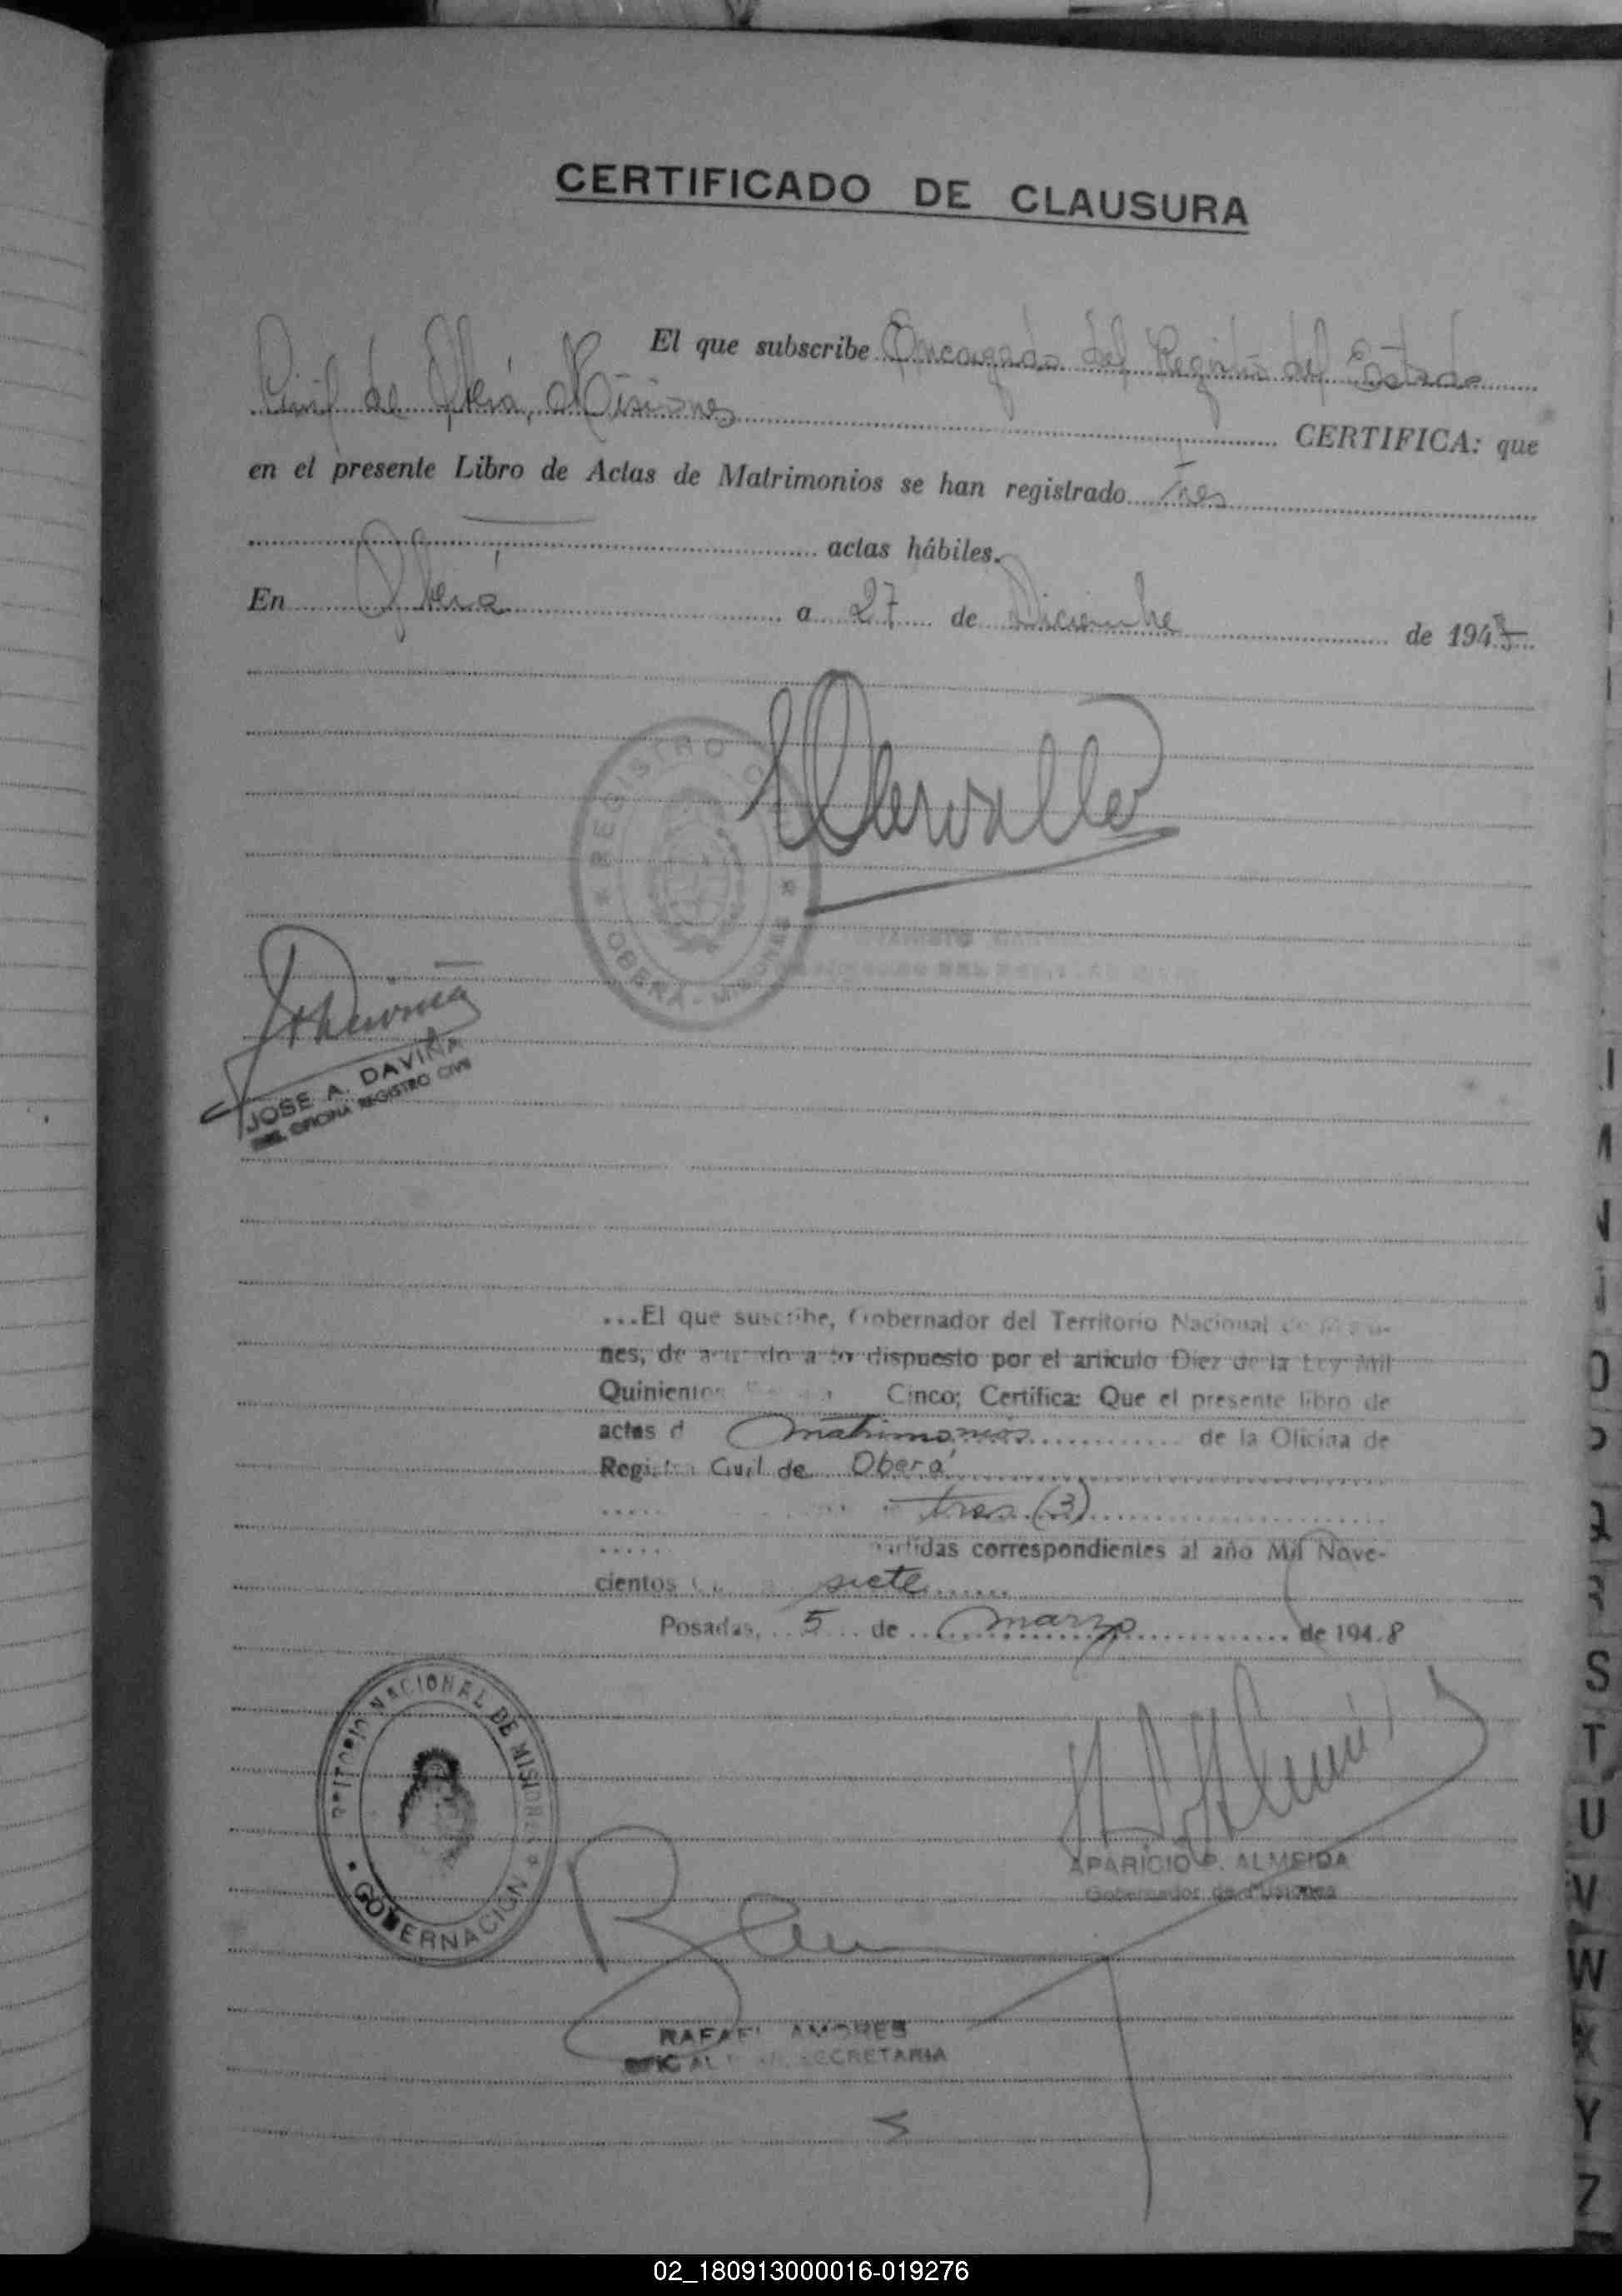 CERTIFICADO DE CLAUSURA
El que subscribe Encargado del Registro del Estado
Civil de Oberá, Misiones CERTIFICA: que
en el presente Libro de Actas de Matrimonios se han registrado Tres
actas hábiles.
En Oberá a 27 de Diciembre de 194
REGISTRO
OBERA - MISIONES
JOSE A. DAVIÑA
OFICINA REGISTRO CIVIL
...El que suscribe, Gobernador del Territorio Nacional de Misio-
nes, de acuerdo a lo dispuesto por el artículo Diez de la Ley Mil
Quinientos Cinco; Certifica: Que el presente libro de
actas d matrimonios de la Oficina de
Registro Civil de Oberá
tres (3)
partidas correspondientes al año Mil Nove-
cientos siete
Posadas, 5 de marzo de 1948
TERRITORIO NACIONAL DE MISIONES
GOBERNACION
APARICIO P. ALMEIDA
Gobernador de Misiones
RAFAEL AMORES
SECRETARIA
S
T
U
V
W
X
Y
Z
02_180913000016-019276